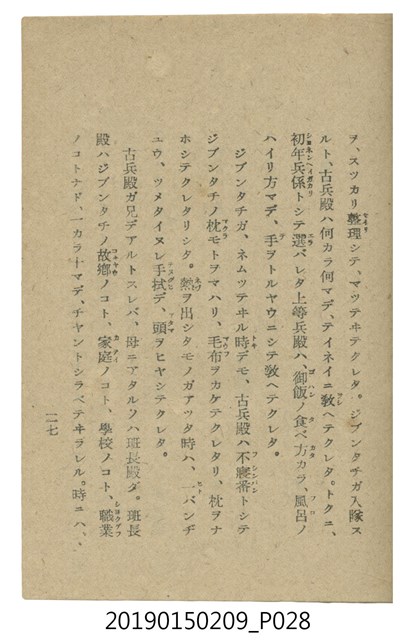 ヲ、スツカリ整理シテ、マツテヰテクレタ。ジブンタチガ入隊ス
ルト、古兵殿ハ何カラ何マデ、テイネイニ敎ヘテクレタ。トクニ、
初年兵係トシテ選バレタ上等兵殿ハ、御飯ノ食ベ方カラ、風呂ノ
ハイリ方マデ、手ヲトルヤウニシテ敎ヘテクレタ。
ジブンタチガ、ネムツテヰル時デモ、古兵殿ハ不寢番トシテ
ジブンタチノ枕モトヲマハリ、毛布ヲカケテクレタリ、枕ヲナ
ホシテクレタリシタ。熱ヲ出シタモノガアツタ時ハ、一バンヂ
ユウ、ツメタイヌレ手拭デ、頭ヲヒヤシテクレタ。
古兵殿ガ兄デアルトスレバ、母ニアタルノハ班長殿ダ。班長
殿ハジブンタチノ故鄕ノコト、家庭ノコト、學校ノコト、職業
ノコトナド、一カラ十マデ、チヤントシラベテヰラレル。時ニハ、
一二七
20190150209_P028